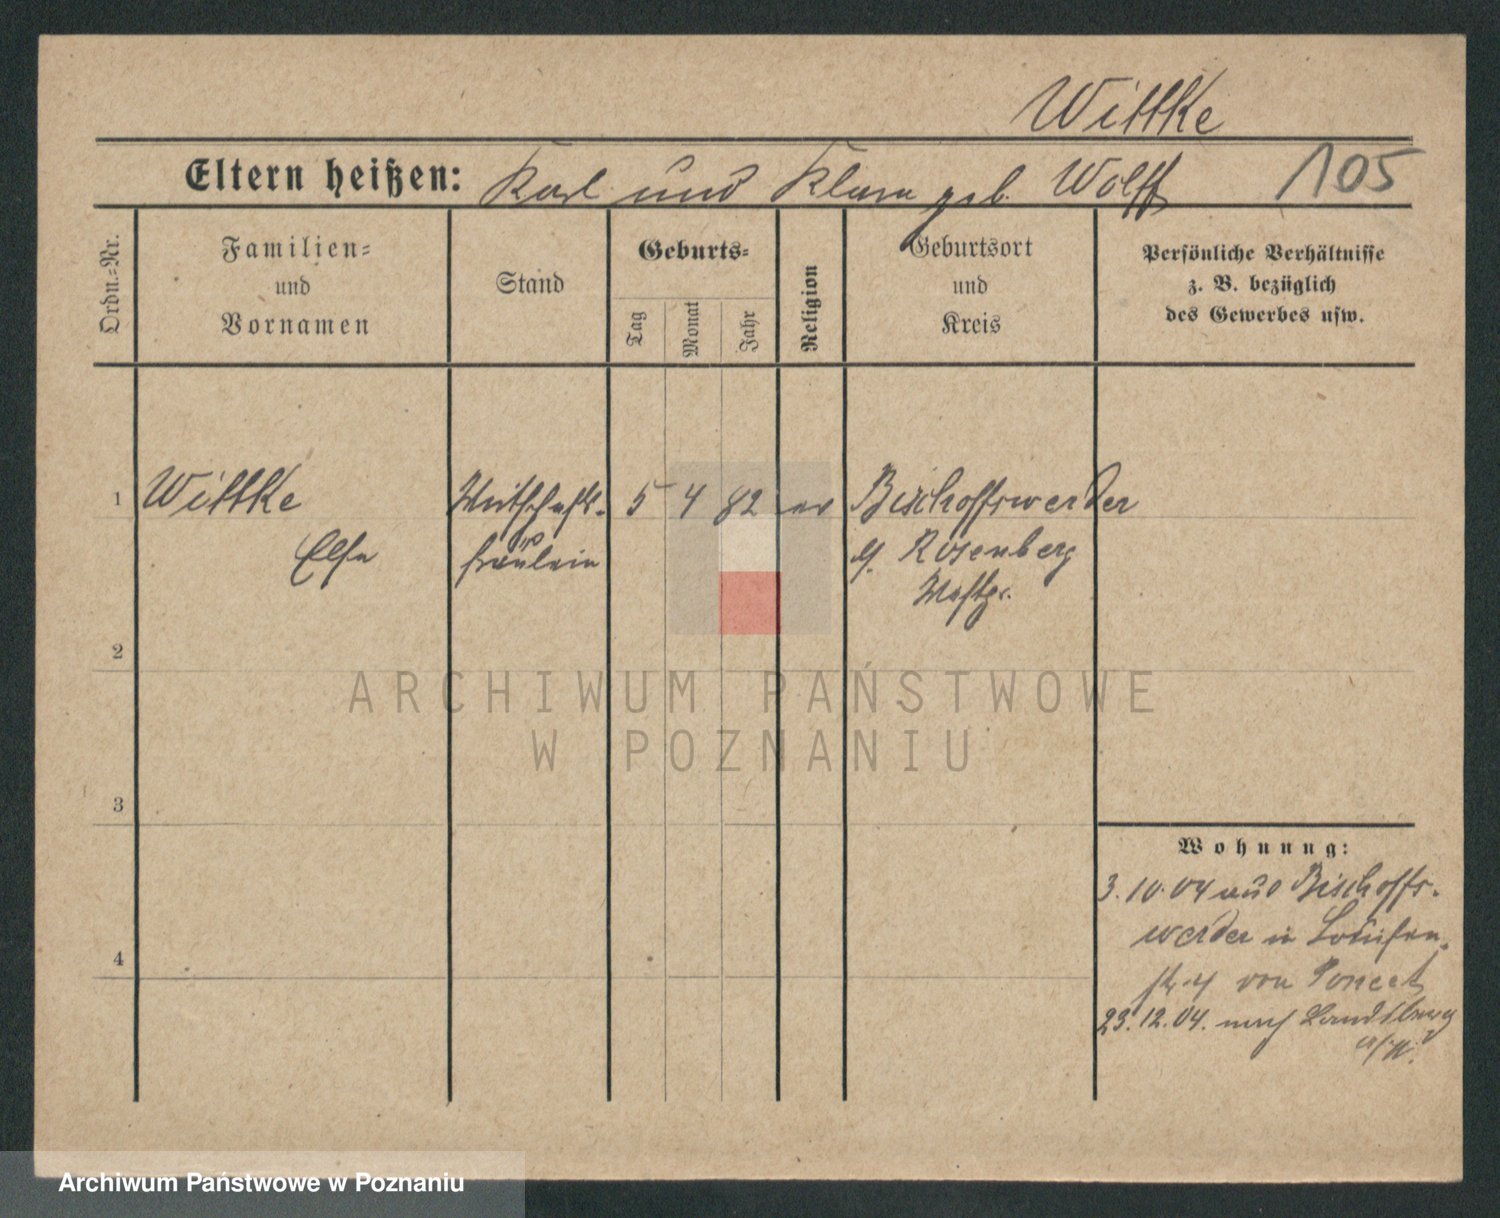 Wittke
Eltern heißen: Karl und Klara geb. Wolff 105
Ordn.=Nr.
Familien=
und
Vornamen
Stand
Geburts=
Tag
Monat
Jahr
Religion
Geburtsort
und
Kreis
Persönliche Verhältnisse
z. B. bezüglich
des Gewerbes usw.
1 Wittke Wirtschafts- 5 4 82 ev Bischoffswerder
Else fräulein Kr. Rosenberg
Westpr.
2
3
4
Wohnung:
3.10.04 aus Bischoffs-
werder in Louisen-
str. 4 von Poncet
23.12.04. nach Landsberg
a/W.
ARCHIWUM PAŃSTWOWE
W POZNANIU
Archiwum Państwowe w Poznaniu